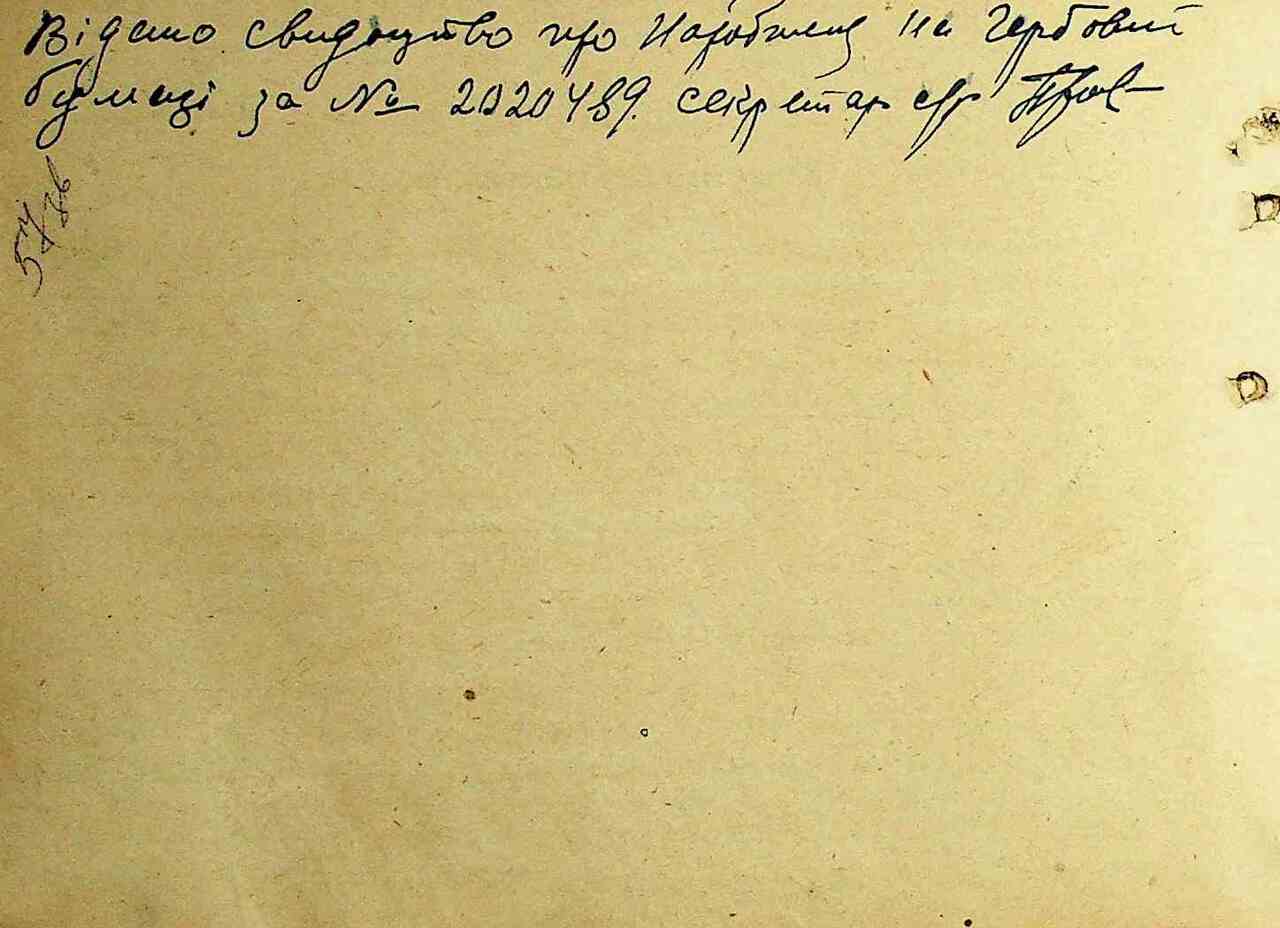 Відано свидоцтво про Народження на гербовий
бумазі за № 2020489. секретар с/р